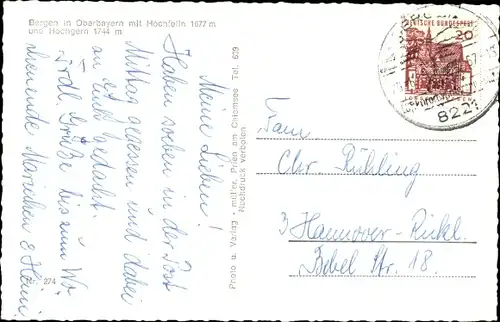 Bergen in Oberbayern mit Hochfelln 1677 m
und Hochgern 1744 m
Meine Lieben!
Haben soeben in der Post
Mittag gegessen und dabei
an euch gedacht.
Frdl. Grüße bis zum Wo-
chenende Mariechen & Heini
Nr. 274
Photo u. Verlag · müller, Prien am Chiemsee Tel. 629
Nachdruck verboten
DEUTSCHE BUNDESPOST
20
822
Fam.
Chr. Rühling
3 Hannover-Rickl.
Bebel Str. 18.